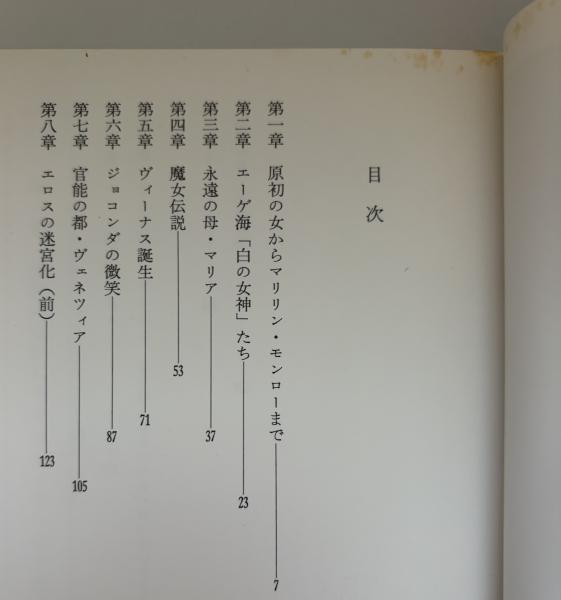 目次
第一章 原初の女からマリリン・モンローまで 7
第二章 エーゲ海「白の女神」たち 23
第三章 永遠の母・マリア 37
第四章 魔女伝説 53
第五章 ヴィーナス誕生 71
第六章 ジョコンダの微笑 87
第七章 官能の都・ヴェネツィア 105
第八章 エロスの迷宮化(前) 123